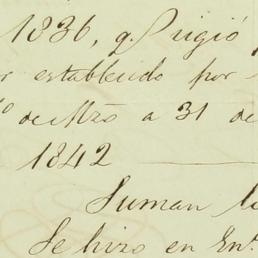 1836, q. rigió
establecido por
de Mzo a 31 de
1842
Suman l
Se hizo en En.